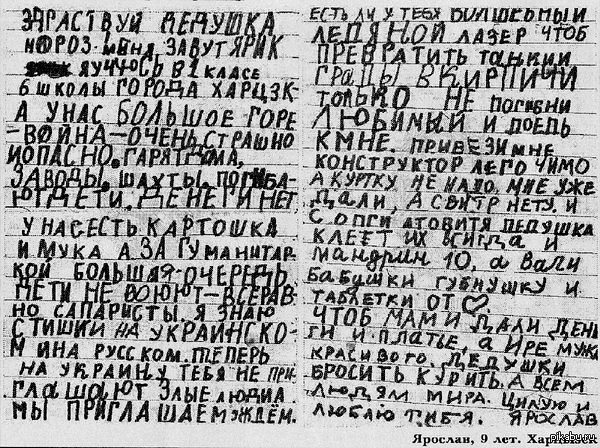 ЗДРАСТВУЙ ДЕДУШКА
МОРОЗ. МЕНЯ ЗАВУТ ЯРИК
Я УЧУСЬ В 1 КЛАСЕ
6 ШКОЛЫ ГОРОДА ХАРЦЗК-
А У НАС БОЛЬШОЕ ГОРЕ
-ВОЙНА-ОЧЕНЬ СТРАШНО
И ОПАСНО. ГАРЯТ ДОМА,
ЗАВОДЫ, ШАХТЫ. ПОГИБА-
ЮТ ДЕТИ. ДЕНЕГ И НЕТ
У НАС ЕСТЬ КАРТОШКА
И МУКА А ЗА ГУМАНИТАР-
КОЙ БОЛЬШАЯ ОЧЕРЕДЬ.
ДЕТИ НЕ ВОЮЮТ-ВСЕРАВ-
НО САПАРИСТЫ. Я ЗНАЮ
СТИШКИ НА УКРАИНСКО-
М И НА РУССКОМ. ТЕПЕРЬ
НА УКРАИНУ ТЕБЯ НЕ ПРИ-
ГЛАШАЮТ ЗЛЫЕ ЛЮДИ А
МЫ ПРИГЛАШАЕМ ЖДЁМ.
ЕСТЬ ЛИ У ТЕБЯ ВОЛШЕБНЫЙ
ЛЕДЯНОЙ ЛАЗЕР ЧТОБ
ПРЕВРАТИТЬ ТАНКИ И
ГРАДЫ В КИРПИЧИ
ТОЛЬКО НЕ ПОГИБНИ
ЛЮБИМЫЙ И ПОЕДЬ
К МНЕ. ПРИВЕЗИ МНЕ
КОНСТРУКТОР ЛЕГО ЧИМО
А КУРТКУ НЕ НАДО. МНЕ УЖЕ
ДАЛИ, А СВИТР НЕТУ. И
САПОГИ А ТО ВИТЯ ДЕДУШКА
КЛЕЕТ ИХ ВСИГДА И
МАНДРИН 10, А ВАЛИ
БАБУШКИ ГУБНУШКУ И
ТАБЛЕТКИ ОТ ♡.
ЧТОБ МАМИ ДАЛИ ДЕНЬ
ГИ И ПЛАТЬЕ, А ИРЕ МУЖА
КРАСИВОГО. ДЕДУШКИ
БРОСИТЬ КУРИТЬ. А ВСЕМ
ЛЮДЯМ МИРА. ЦИЛУЮ И
ЛЮБЛЮ ТИБЯ. ЯРОСЛАВ
Ярослав, 9 лет.
pikabu.ru